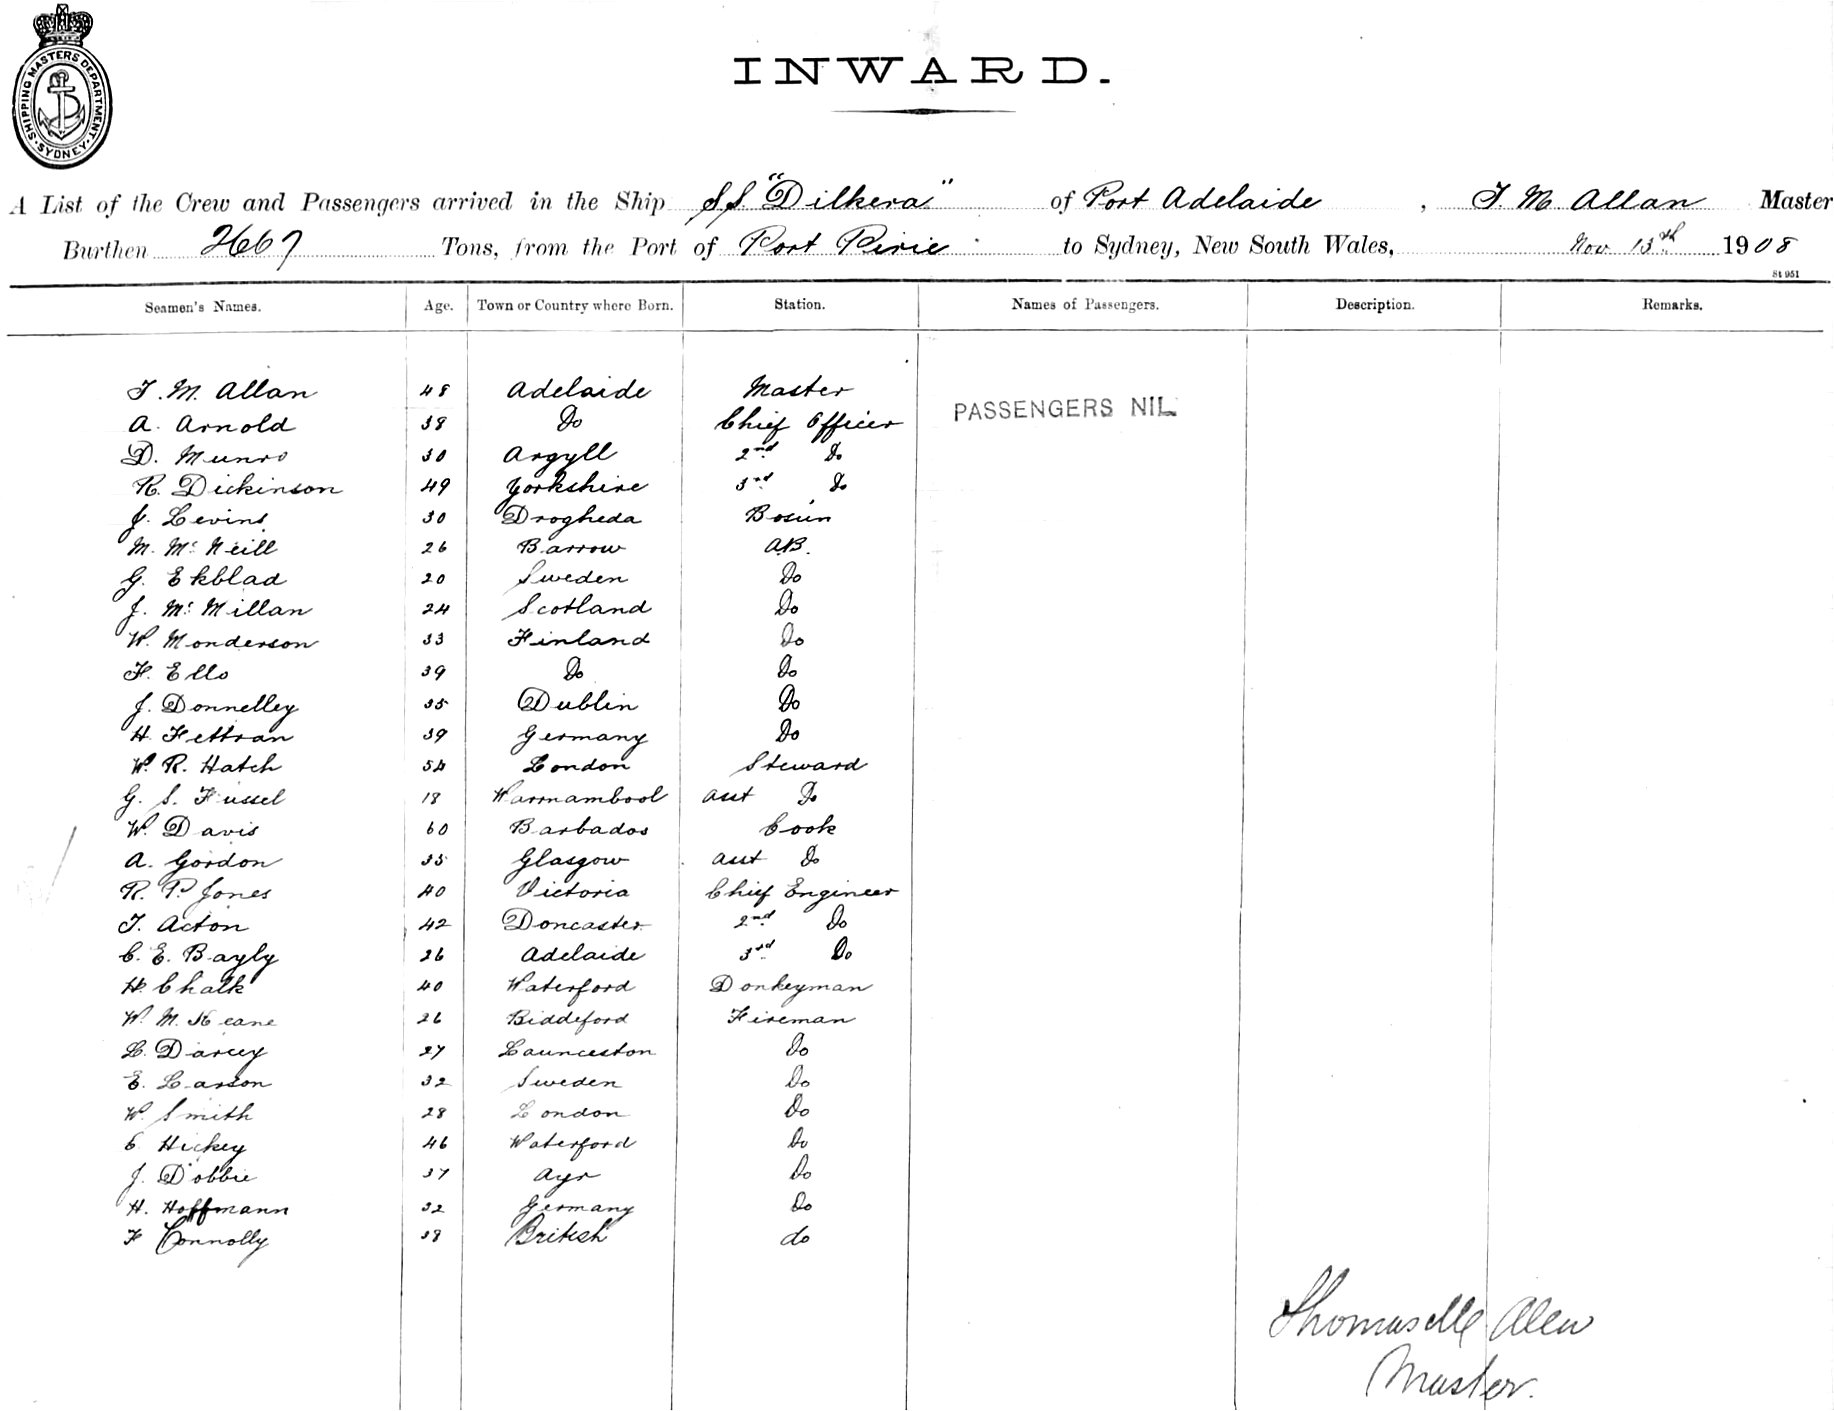 SHIPPING MASTERS DEPARTMENT
SYDNEY
INWARD.
A List of the Crew and Passengers arrived in the Ship SS "Dilkera" of Port Adelaide, T. M. Allan Master
Burthen 2667 Tons, from the Port of Port Pirie to Sydney, New South Wales, Nov 13th 1908
St 951
Seamen's Names. Age. Town or Country where Born. Station. Names of Passengers. Description. Remarks.
T. M. Allan 48 Adelaide Master
PASSENGERS NIL
A. Arnold 38 Do Chief Officer
D. Munro 30 Argyll 2nd Do
R. Dickinson 49 Yorkshire 3rd Do
J. Levins 30 Drogheda Bosun
M. Mc Neill 26 Barrow AB.
G. Ekblad 20 Sweden Do
J. Mc Millan 24 Scotland Do
W. Monderson 33 Finland Do
F. Ello 39 Do Do
J. Donnelley 35 Dublin Do
H. Fettran 39 Germany Do
W. R. Hatch 54 London Steward
G. S. Fussel 18 Warrnambool asst Do
W. Davis 60 Barbados Cook
A. Gordon 35 Glasgow asst Do
R. P. Jones 40 Victoria Chief Engineer
T. Acton 42 Doncaster 2nd Do
C. E. Bayly 26 Adelaide 3rd Do
H. Chalk 40 Waterford Donkeyman
W. M. Keane 26 Biddeford Fireman
L. Darcey 27 Launceston Do
E. Larson 32 Sweden Do
W. Smith 28 London Do
C Hickey 46 Waterford Do
J. Dobbie 37 Ayr Do
H. Hoffmann 32 Germany Do
F Connolly 38 British do
Thomas M Allan
Master.